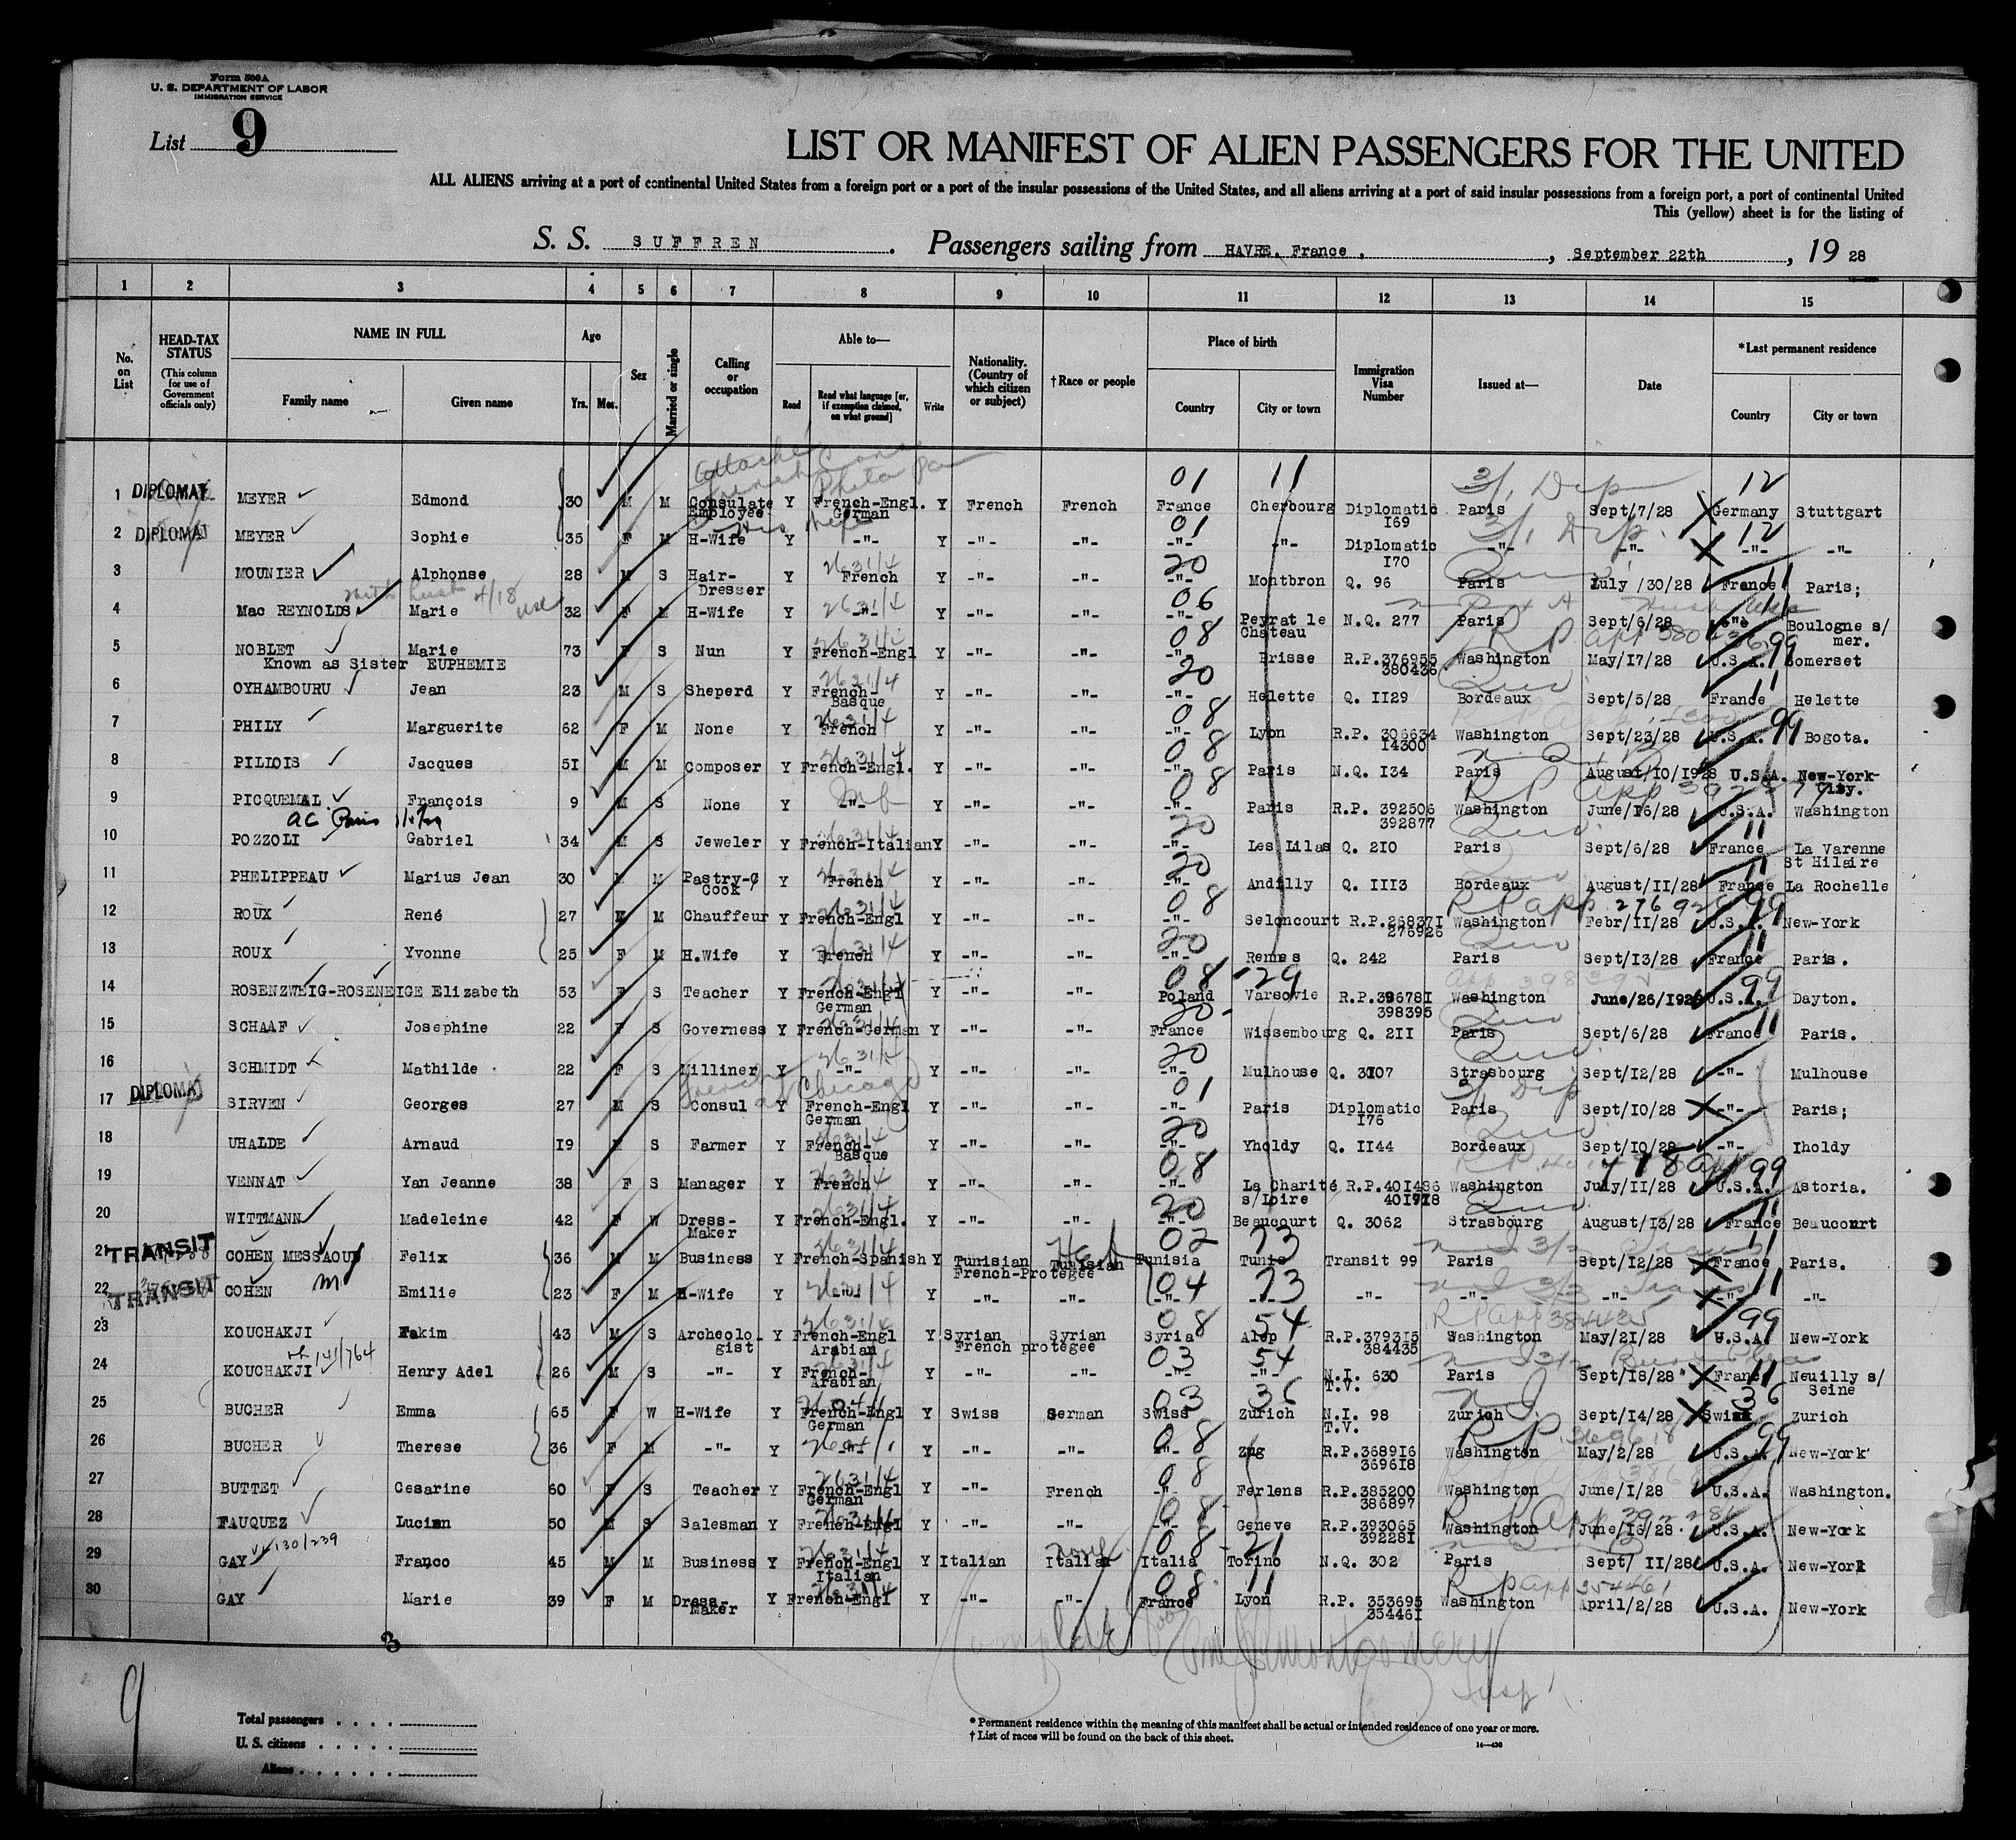 Form 500A
U. S. DEPARTMENT OF LABOR
IMMIGRATION SERVICE
List 9
LIST OR MANIFEST OF ALIEN PASSENGERS FOR THE UNITED
ALL ALIENS arriving at a port of continental United States from a foreign port or a port of the insular possessions of the United States, and all aliens arriving at a port of said insular possessions from a foreign port, a port of continental United
This (yellow) sheet is for the listing of
S. S. SUFFREN. Passengers sailing from HAVRE, France, September 22th, 19 28
1 2 3 4 5 6 7 8 9 10 11 12 13 14 15
No. on List
HEAD-TAX STATUS (This column for use of Government officials only)
NAME IN FULL Family name Given name
Age Yrs. Mos.
Sex
Married or single
Calling or occupation
Able to— Read Read what language [or, if exemption claimed, on what ground] Write
Nationality. (Country of which citizen or subject)
†Race or people
Place of birth Country City or town
Immigration Visa Number
Issued at—
Date
*Last permanent residence Country City or town
1 DIPLOMAT MEYER Edmond 30 M M Consulate Employee Y French-Engl. German Y French French France Cherbourg Diplomatic I69 Paris Sept/7/28 Germany Stuttgart
2 DIPLOMAT MEYER Sophie 35 F M H-Wife Y -"- Y -"- -"- -"- -"- Diplomatic I70 -"- -"- -"- -"-
3 MOUNIER Alphonse 28 M S Hair-Dresser Y French Y -"- -"- -"- Montbron Q. 96 Paris July /30/28 France Paris;
4 Mac REYNOLDS Marie 32 F M H-Wife Y -"- Y -"- -"- -"- Peyrat le Chateau N.Q. 277 Paris Sept/6/28 -"- Boulogne s/ mer.
5 NOBLET Marie 73 F S Nun Y French-Engl Y -"- -"- -"- Brisse R.P.376955 380436 Washington May/I7/28 U.S.A. Somerset
Known as Sister EUPHEMIE
6 OYHAMBOURU Jean 23 M S Sheperd Y French-Basque Y -"- -"- -"- Helette Q. II29 Bordeaux Sept/5/28 France Helette
7 PHILY Marguerite 62 F M None Y French Y -"- -"- -"- Lyon R.P. 306634 I4300 Washington Sept/23/28 U.S.A. Bogota.
8 PILLOIS Jacques 5I M M Composer Y French-Engl. Y -"- -"- -"- Paris N.Q. I34 Paris August/IO/I928 U.S.A. New-York-City.
9 PICQUEMAL François 9 M S None Y -"- Y -"- -"- -"- Paris R.P. 392506 392877 Washington June/I6/28 U.S.A. Washington
10 POZZOLI Gabriel 34 M S Jeweler Y French-Italian Y -"- -"- -"- Les Lilas Q. 2IO Paris Sept/6/28 France La Varenne St Hilaire
11 PHELIPPEAU Marius Jean 30 M M Pastry-Cook Y French Y -"- -"- -"- Andilly Q. III3 Bordeaux August/II/28 France La Rochelle
12 ROUX René 27 M M Chauffeur Y French-Engl Y -"- -"- -"- Seloncourt R.P.26837I 276926 Washington Febr/II/28 U.S.A. New-York
13 ROUX Yvonne 25 F M H.Wife Y French Y -"- -"- -"- Rennes Q. 242 Paris Sept/I3/28 France Paris.
14 ROSENZWEIG-ROSENEIGE Elizabeth 53 F S Teacher Y French-Engl German Y -"- -"- Poland Varsovie R.P.39678I 398395 Washington June/26/I928 U.S.A. Dayton.
15 SCHAAF Josephine 22 F S Governess Y French-German Y -"- -"- France Wissembourg Q. 2II Paris Sept/6/28 France Paris.
16 SCHMIDT Mathilde 22 F S Milliner Y -"- Y -"- -"- -"- Mulhouse Q. 3I07 Strasbourg Sept/I2/28 -"- Mulhouse
17 DIPLOMAT SIRVEN Georges 27 M S Consul Y French-Engl German Y -"- -"- -"- Paris Diplomatic I76 Paris Sept/IO/28 -"- Paris;
18 UHALDE Arnaud I9 M S Farmer Y French-Basque Y -"- -"- -"- Yholdy Q. II44 Bordeaux Sept/IO/28 -"- Iholdy
19 VENNAT Yan Jeanne 38 F S Manager Y French Y -"- -"- -"- La Charité s/Loire R.P.40I486 40I9I8 Washington July/II/28 U.S.A. Astoria.
20 WITTMANN Madeleine 42 F W Dress-Maker Y French-Engl. Y -"- -"- -"- Beaucourt Q. 3062 Strasbourg August/I3/28 France Beaucourt
21 TRANSIT COHEN MESSAOUD Felix 36 M M Business Y French-Spanish Y Tunisian French-Protegee Tunisian Tunisia Tunis Transit 99 Paris Sept/I2/28 France Paris.
22 TRANSIT COHEN M Emilie 23 F M H-Wife Y -"- Y -"- -"- -"- -"- -"- -"- -"- -"- -"-
23 KOUCHAKJI Fakim 43 M S Archeologist Y French-Engl Arabian Y Syrian French protegee Syrian Syria Alep R.P.3793I5 384435 Washington May/2I/28 U.S.A. New-York
24 KOUCHAKJI Henry Adel 26 M S -"- Y French-Arabian Y -"- -"- -"- -"- N.I. 630 T.V. Paris Sept/I8/28 France Neuilly s/ Seine
25 BUCHER Emma 65 F W H-Wife Y French-Engl German Y Swiss German Swiss Zurich N.I. 98 T.V. Zurich Sept/I4/28 Swiss Zurich
26 BUCHER Therese 36 F M -"- Y -"- Y -"- -"- -"- Zug R.P.3689I6 3696I8 Washington May/2/28 U.S.A. New-York
27 BUTTET Cesarine 60 F S Teacher Y French-Engl German Y -"- French -"- Ferlens R.P.385200 386897 Washington June/I/28 U.S.A. Washington.
28 FAUQUEZ Lucien 50 M S Salesman Y French-Engl Y -"- -"- -"- Geneve R.P.393065 39228I Washington June/I6/28 U.S.A. New-York
29 GAY Franco 45 M M Business Y French-Engl Italian Y Italian Italian Italia Torino N.Q. 302 Paris Sept/ II/28 U.S.A. New-York
30 GAY Marie 39 F M Dress-Maker Y French-Engl Y -"- -"- France Lyon R.P. 353695 35446I Washington April/2/28 U.S.A. New-York
3
9
Total passengers
U. S. citizens
Aliens
* Permanent residence within the meaning of this manifest shall be actual or intended residence of one year or more.
† List of races will be found on the back of this sheet.
14—430